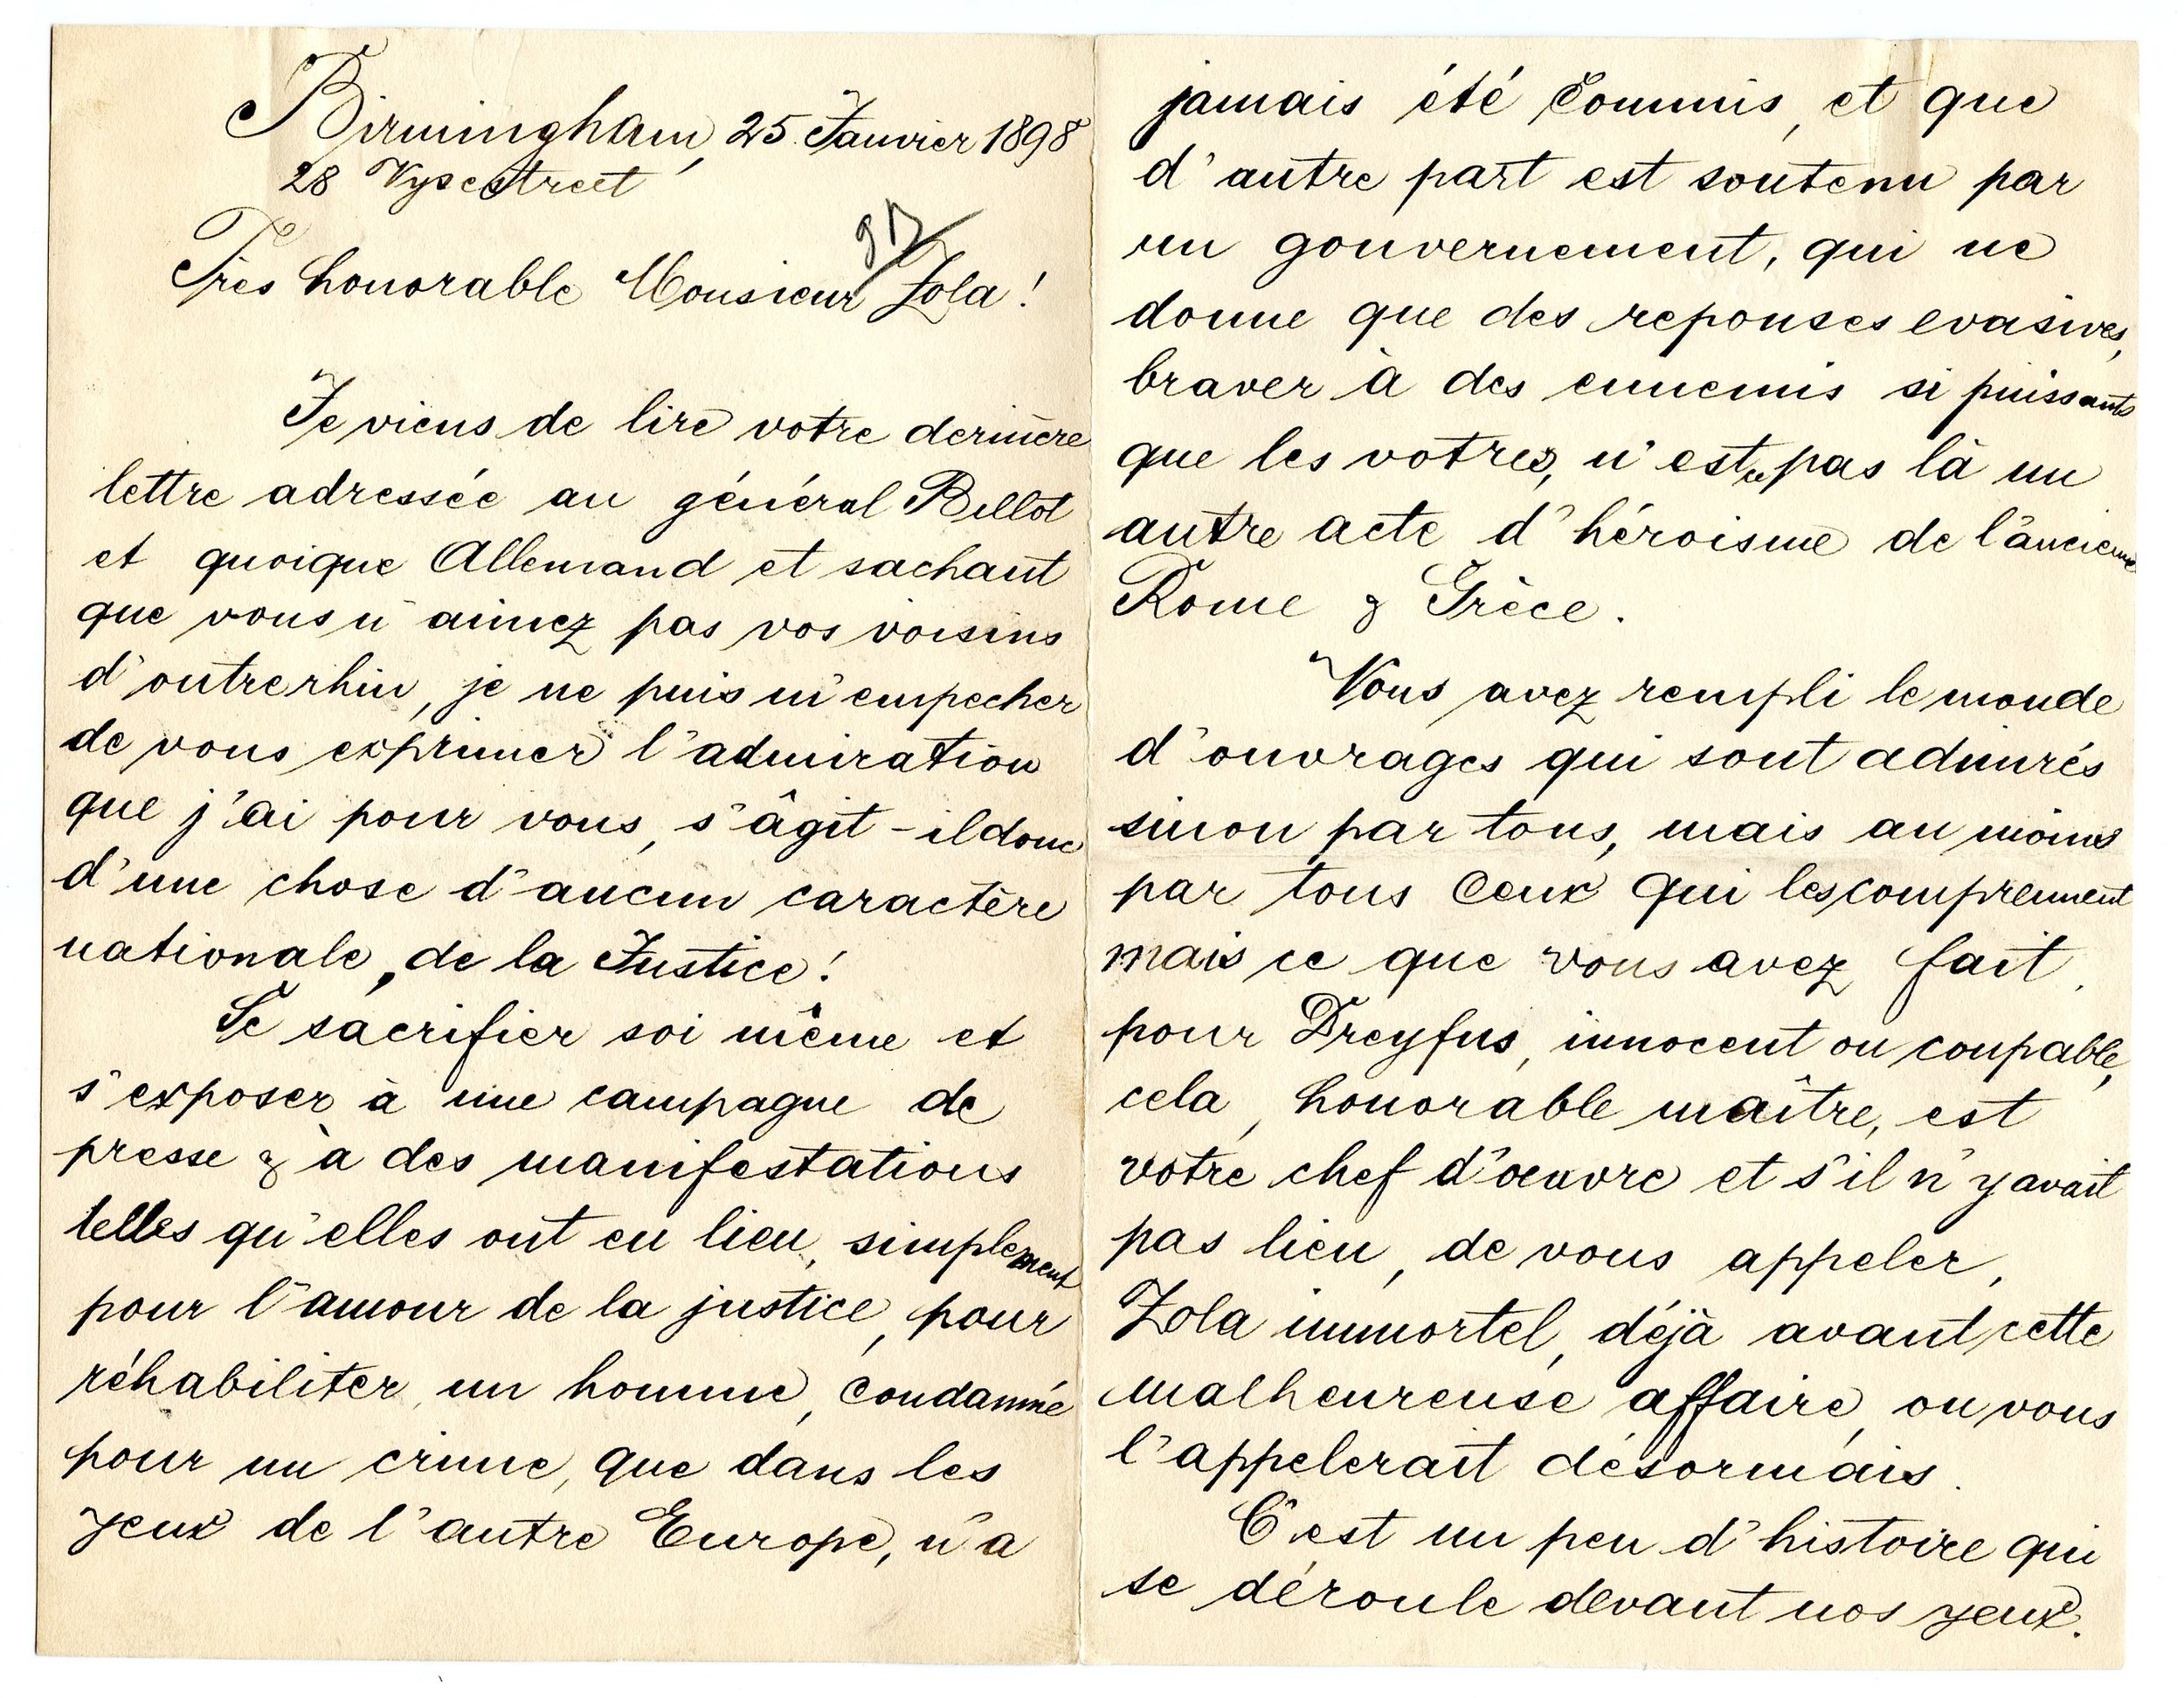 Birmingham, 25. Janvier 1898
28 Vyse street
97
Très honorable Monsieur Zola!
Je viens de lire votre dernière
lettre adressée au général Billot
et quoique Allemand et sachant
que vous n'aimez pas vos voisins
d'outrerhin, je ne puis m'empecher
de vous exprimer l'admiration
que j'ai pour vous, s'âgit-il donc
d'une chose d'aucun caractère
nationale, de la Justice!
Se sacrifier soi même et
s'exposer à une campagne de
presse & à des manifestations
telles qu'elles ont eu lieu, simplement
pour l'amour de la justice, pour
réhabiliter un homme, condamné
pour un crime, que dans les
yeux de l'autre Europe, n'a
jamais été commis, et que
d'autre part est soutenu par
un gouvernement, qui ne
donne que des reponses evasives,
braver à des ennemis si puissants
que les votres, n'est ce pas là un
autre acte d'héroisme de l'ancienne
Rome & Grèce.
Vous avez rempli le monde
d'ouvrages qui sont admirés
sinon par tous, mais au moins
par tous ceux qui les comprennent
mais ce que vous avez fait
pour Dreyfus, innocent ou coupable,
cela, honorable maître, est
votre chef d'oeuvre et s'il n'y avait
pas lieu, de vous appeler,
Zola immortel, déjà avant cette
malheureuse affaire, on vous
l'appelerait désormais.
C'est un peu d'histoire qui
se déroule devant nos yeux.